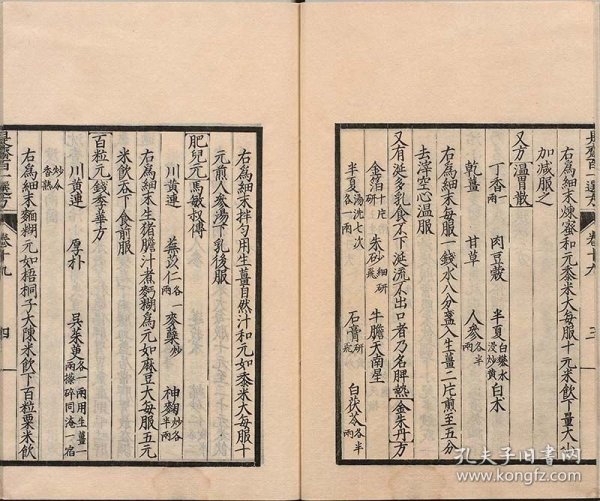 右為細末煉蜜和元黍米大每服十元米飲下量大小
加減服之
又方溫胃散
丁香一兩 肉豆蔻 半夏白礬水浸炒黃 白朮
乾薑 甘草 人參各半兩
右為細末每服一錢水八分盞入生薑二片煎至五分
去滓空心溫服
又有涎多乳食不下涎流不出口者乃名脾熱金朱丹方
金箔十片研 朱砂細研飛 牛膽天南星
半夏湯洗七次各一兩 石膏研飛 白茯苓各半兩
長齋百一選方 卷十九 三
右為細末拌勻用生薑自然汁和元如黍米大每服十
元煎人參湯下乳後服
肥兒元馬敏叔傳
川黃連 蕪荑仁各一兩 麥蘗炒 神麴炒各半兩
右為細末生猪膽汁煮麵糊為元如麻豆大每服五元
米飲吞下食前服
百粒元錢季華方
川黃連炒令香熟 厚朴 吳茱萸各一兩用生薑一兩擦碎同淹一宿
右為細末麵糊元如梧桐子大陳米飲下百粒粟米飲
卷十九 四
孔夫子旧书网
www.kongfz.com